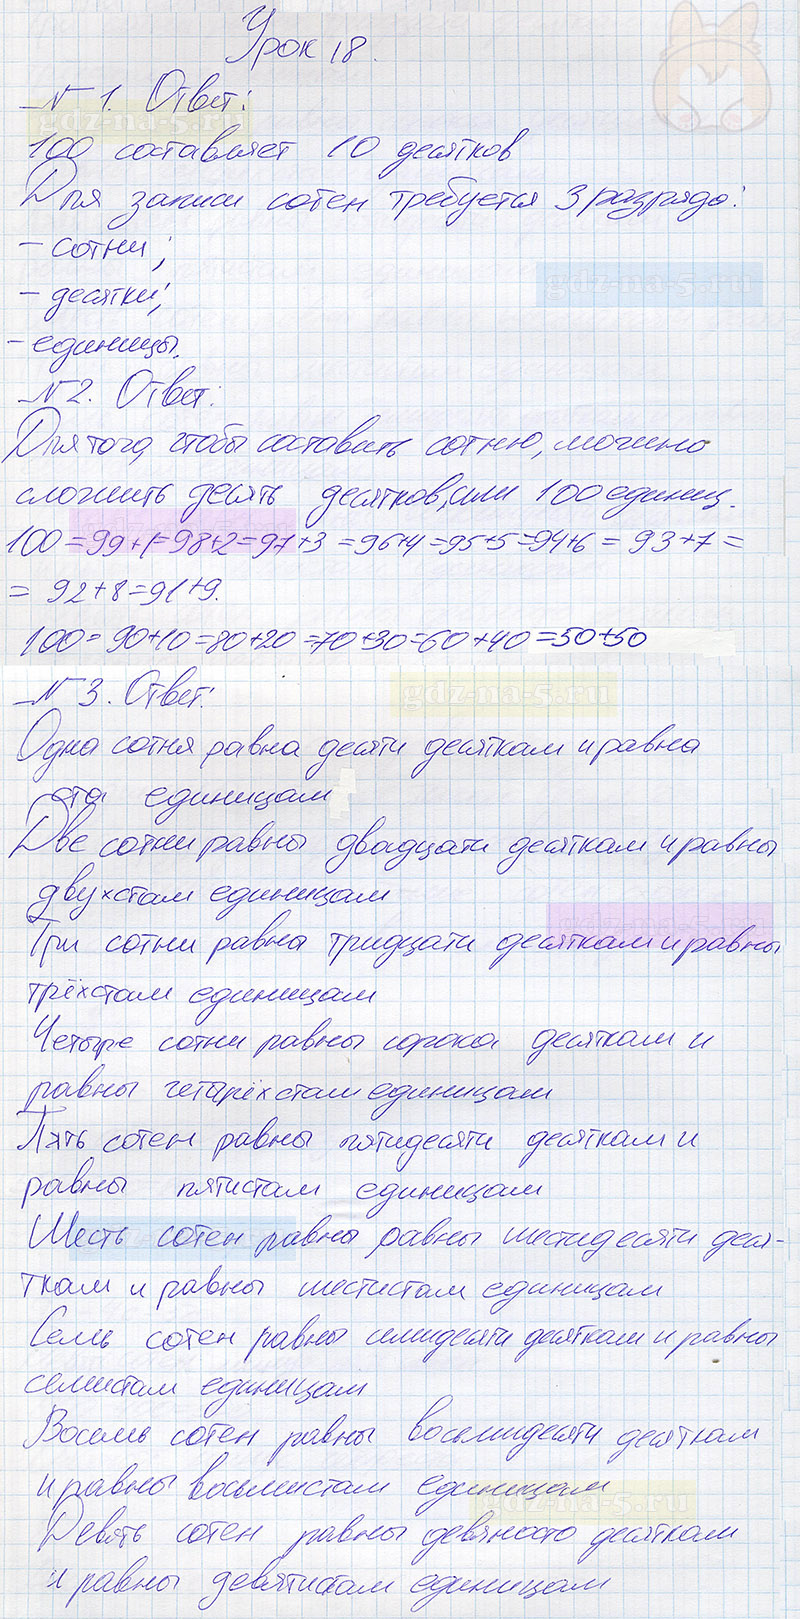 Урок 18.
№ 1. Ответ:
gdz-na-5.ru
100 составляет 10 десятков
Для записи сотен требуется 3 разряда:
- сотни;
- десятки;
gdz-na-5.ru
- единицы.
№ 2. Ответ:
Для того, чтобы составить сотню, можно
сложить десять десятков, или 100 единиц.
100 = 99+1 = 98+2 = 97+3 = 96+4 = 95+5 = 94+6 = 93+7 =
= 92+8 = 91+9.
100 = 90+10 = 80+20 = 70+30 = 60+40 = 50+50
№ 3. Ответ:
gdz-na-5.ru
Одна сотня равна десяти десяткам и равна
ста единицам
Две сотни равны двадцати десяткам и равны
двухстам единицам
gdz-na-5.ru
Три сотни равна тридцати десяткам и равны
трёхстам единицам
Четыре сотни равны сорока десяткам и
равны четырёхстам единицам
Пять сотен равны пятидесяти десяткам и
равны пятистам единицам
Шесть сотен равны равны шестидесяти деся-
ткам и равны шестистам единицам
Семь сотен равны семидесяти десяткам и равны
семистам единицам
Восемь сотен равны восьмидесяти десяткам
и равны восьмистам единицам
gdz-na-5.ru
Девять сотен равны девяносто десяткам
и равны девятистам единицам